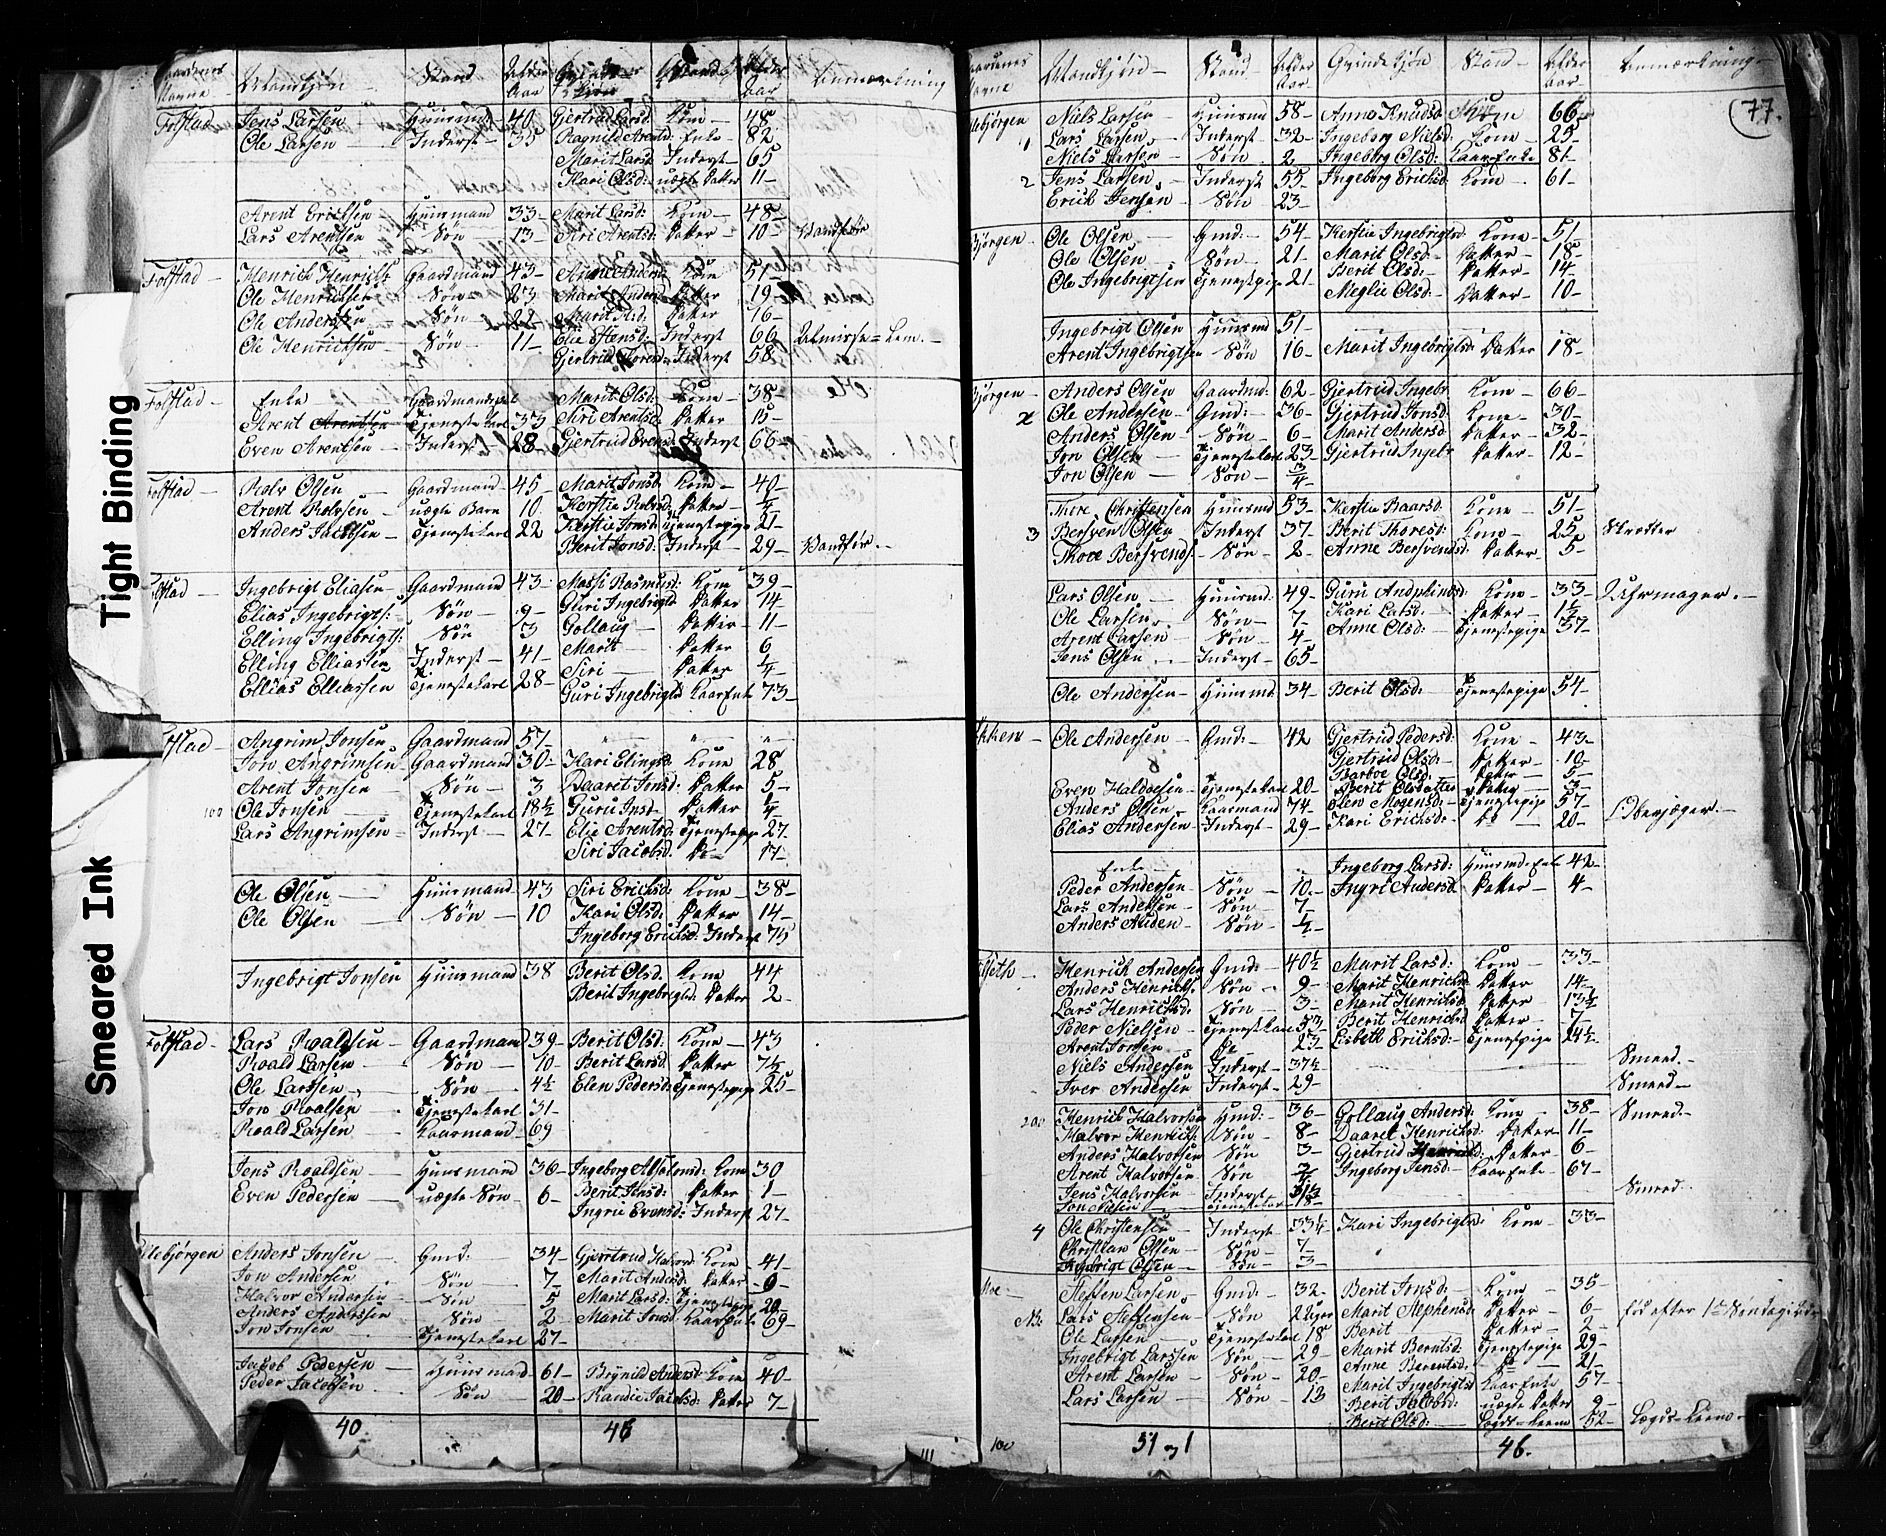 Tight Binding
Smeared Ink
77.
Mandkjøn Stand Alder Aar Qvindekjøn Stand Alder aar Anmærkning
Folstad Jens Larsen Huusmd 40 Gjertrud Larsd: Kone 48
Ole Larsen Inderst 35 Ragnild Arentd: Enke 82
Marit Larsd: Inderst 65
Kari Olsd: uægte Datter 11
Arent Ericksen Huusmand 33 Marit Larsd: Kone 48
Lars Arentsen Søn 13 Siri Arentsd: Datter 10 Vandfør
Folstad Henrich Henrichs: Gaardmand 43 Anne Andersd: Kone 51
Ole Henrichsen Søn 23 Marit Andersd: Datter 19
Ole Andersen Søn 22 Marit H:d: Datter 16
Ole Henrichsen Søn 11 Elie Stensd: Inderst 66 Almisse-Lem
Gjertrud Toresd: Inderst 58
Folstad Enke Marit Olsd: Kone 38
Arent Arentsen Tjenestekarl 33 Siri Arentsd: Datter 15
Even Arentsen Inderst 28 Gjertrud Evens: Inderst 66
Folstad Rolv Olsen Gaardmand 45 Marit Jonsd: Kone 40
Arent Rolvsen uægte Barn 10 Kerstie Rolvsd: Datter
Anders Jacobsen Tjenestekarl 22 Kerstie Jonsd: Tjenestepige 21
Berit Jonsd: Inderst 29 Vandfør
Folstad Ingebrigt Eliasen Gaardmand 43 Massi Rasmusd: Kone 39
Elias Ingebrigts: Søn 9 Guri Ingebrigtd: Datter 14
Elling Ingebrigts: Søn 3 Gollaug Datter 11
Elling Elliassen Inderst 41 Marit Datter 6
Ellias Elliassen Tjenestekarl 28 Siri Datter 1/4
Guri Ingebrigtd: KaarEnke 73
Folstad Angrim Jonsen Gaardmand 57
Jon Angrimsen Gaardmand 30 Kari Elingsd: Kone 28
Arent Jonsen Søn 3 Daarit Jonsd: Datter 5
100 Ole Jonsen Tjenestekarl 18½ Guru Jnsd: Datter 1/4
Lars Angrimsen Inderst 27 Elie Arentsd: Tjenestepige 27
Siri Jacobsd: Do 17
Ole Olsen Huusmand 43 Siri Ericksd: Kone 38
Ole Olsen Søn 10 Kari Olsd: Datter 14
Ingeborg Ericksd: Inderst 75
Ingebrigt Jonsen Huusmand 38 Berit Olsd: Kone 44
Berit Ingebrigtd: Datter 2
Folstad Lars Roaldsen Gaardmand 39 Berit Olsd: Kone 43
Roald Larsen Søn 10 Berit Larsd: Datter 7½
Ole Larssen Søn 4½ Elen Pedersd: Tjenestepige 25
Jon Roalsen Tjenestekarl 31
Roald Larsen Kaarmand 69
Jens Roaldsen Huusmand 36 Ingeborg Absalonsd: Kone 30
Even Pedersen uægte Søn 6 Berit Jensd: Datter 1
Ingrie Evensd: Inderst 27
Ellebjørgen Anders Jonsen Gmd: 34 Gjertrud Halvorsd: Kone 41
Jon Andersen Søn 7 Marit Andersd: Datter
Halvor Andersen Søn 5 Marit Larsd: Tjenestepige 20
Anders Anderssen Søn 2 Marit Jonsd: KaarEnke 69
Jon Jonsen Tjenestekarl 27
Jacob Pedersen Huusmand 61 Brynild Andersd: Kone 40
Peder Jacobsen Søn 20 Randie Jacobsd: Datter 7
40 48
Mandkjøn Stand Alder Aar Qvindekjøn Stand Alder aar Anmærkning
Ellebjørgen Niels Larsen Huusmd 58 Anne Knudsd: Kone 66
1 Lars Larsen Inderst 32 Ingeborg Nielsd: Kone 25
Niels Larsen Søn 2 Ingeborg Olsd: KaarEnke 81
2 Jens Larsen Inderst 55 Ingeborg Ericksd: Kone 61
Erick Jensen Søn 23
Bjørgen Ole Olsen Gmd: 54 Kerstie Ingebrigtsd: Kone 51
Ole Olsen Søn 21 Marit Olsd: Datter 18
Ole Ingebrigtsen 21 Berit Olsd: Datter 14
Meglie Olsd: Datter 10
Ingebrigt Olsen Huusmd 51
Arent Ingebrigtsen Søn 16 Marit Ingebrigtsd: Datter 18
Bjørgen Anders Olsen Gaardmd: 62 Gjertrud Ingebr: Kone 66
Ole Andersen Gmd: 36 Gjertrud Jonsd: Kone 30
Anders Olsen Søn 6 Marit Andersd: Datter 32
Jon Olsen Tjenestekarl 23 Gjertrud Ingebr: Datter 12
Jon Olsen Søn 3/4
Thore Christensen Huusmd 53 Kerstie Baarsd: Kone 51
3 Bersvend Olsen Inderst 37 Berit Thoresd: Kone 25 Skredder
Thore Bersvends: Søn 2 Anne Bersvendsd: Datter 5
Lars Olsen Huusmd 49 Guru Kone 33 Uhrmager.
Ole Larsen Søn 7 Kari Larsd: Datter 1½
Arent Larsen Søn 4 Anne Olsd: Tjenestepige 37
Jens Olsen Inderst 65
Ole Andersen Huusmd 34 Berit Olsd: Tjenestepige 54
Ole Andersen Gmd: 42 Gjertrud Pedersd: Kone 43
Gjertrud Olsd: Datter 10
Barboe Olsd: Datter 5
Even Haldosen Tjenestekarl 20 Berit Olsdatter Datter 3
Anders Olsen Kaarmand 74 Elen Mogensd: Tjenestepige 57
Elias Andersen Inderst 29 Kari Ericksd: Do 20 Oberjæger.
Enke Ingeborg Larsd: Huusmd: Enke 42
Peder Andersen Søn 10 Ingri Andersd: Datter 4
Lars Andersen Søn 7
Anders Auden Søn
Henrich Andersen Gmd: 40½ Marit Larsd: Kone 33
Anders Henrichs: Søn 9 Marit Henrichsd: Datter 14
Lars Henrichsd: Søn 3 Marit Henrichsd: Datter 13½
Peder Nielsen Tjenestekarl 53 Berit Henrichsd: Datter 7
Arent Jonsen Do 23 Lisbeth Ericksd: Tjenestepige 24½
Niels Andersen Inderst 37½ Smeed
Iver Andersen Inderst 29 Smeed
200 Henrich Halvorsen Huusmd: 36 Gollaug Andersd: Kone 38 Smeed
Halvor Henrichs: Søn 8 Daaret Henrichsd: Datter 11
Anders Halvorsen Søn 3 Gjertrud Henrichsd: Datter 6
Arent Halvorsen Søn Ingeborg Jensd: KaarEnke 67
Jens Halvorsen Inderst 31½ Smeed
Jon Nilsen Tjenestekarl 18
4 Ole Christensen Inderst 33½ Kari Ingebrigtsd: Kone 33
Christian Olsen Søn 7
Ingebrigt Olsen Søn 3
Moe Steffen Larsen Gmd: 32 Berit Jonsd: Kone 35
Lars Steffensen Søn 2 Uger Marit Stephensd: Datter 6 fød efter 1ste Søndag i
Ole Larsen Tjenestekarl 18 Berit Datter 2
Ingebrigt Larssen Søn 29 Marit Berntsd: Tjenestepige 29
Arent Larsen Søn 20 Anne Berentsd: Do 21
Lars Larsen Søn 13 Marit Ingebrigtsd KaarEnke 57
Berit Jacobsd: uægte Datter 9
Berit Olsd: Lægds-Leem 52 Lægds-Leem
100 51 og 1 46.